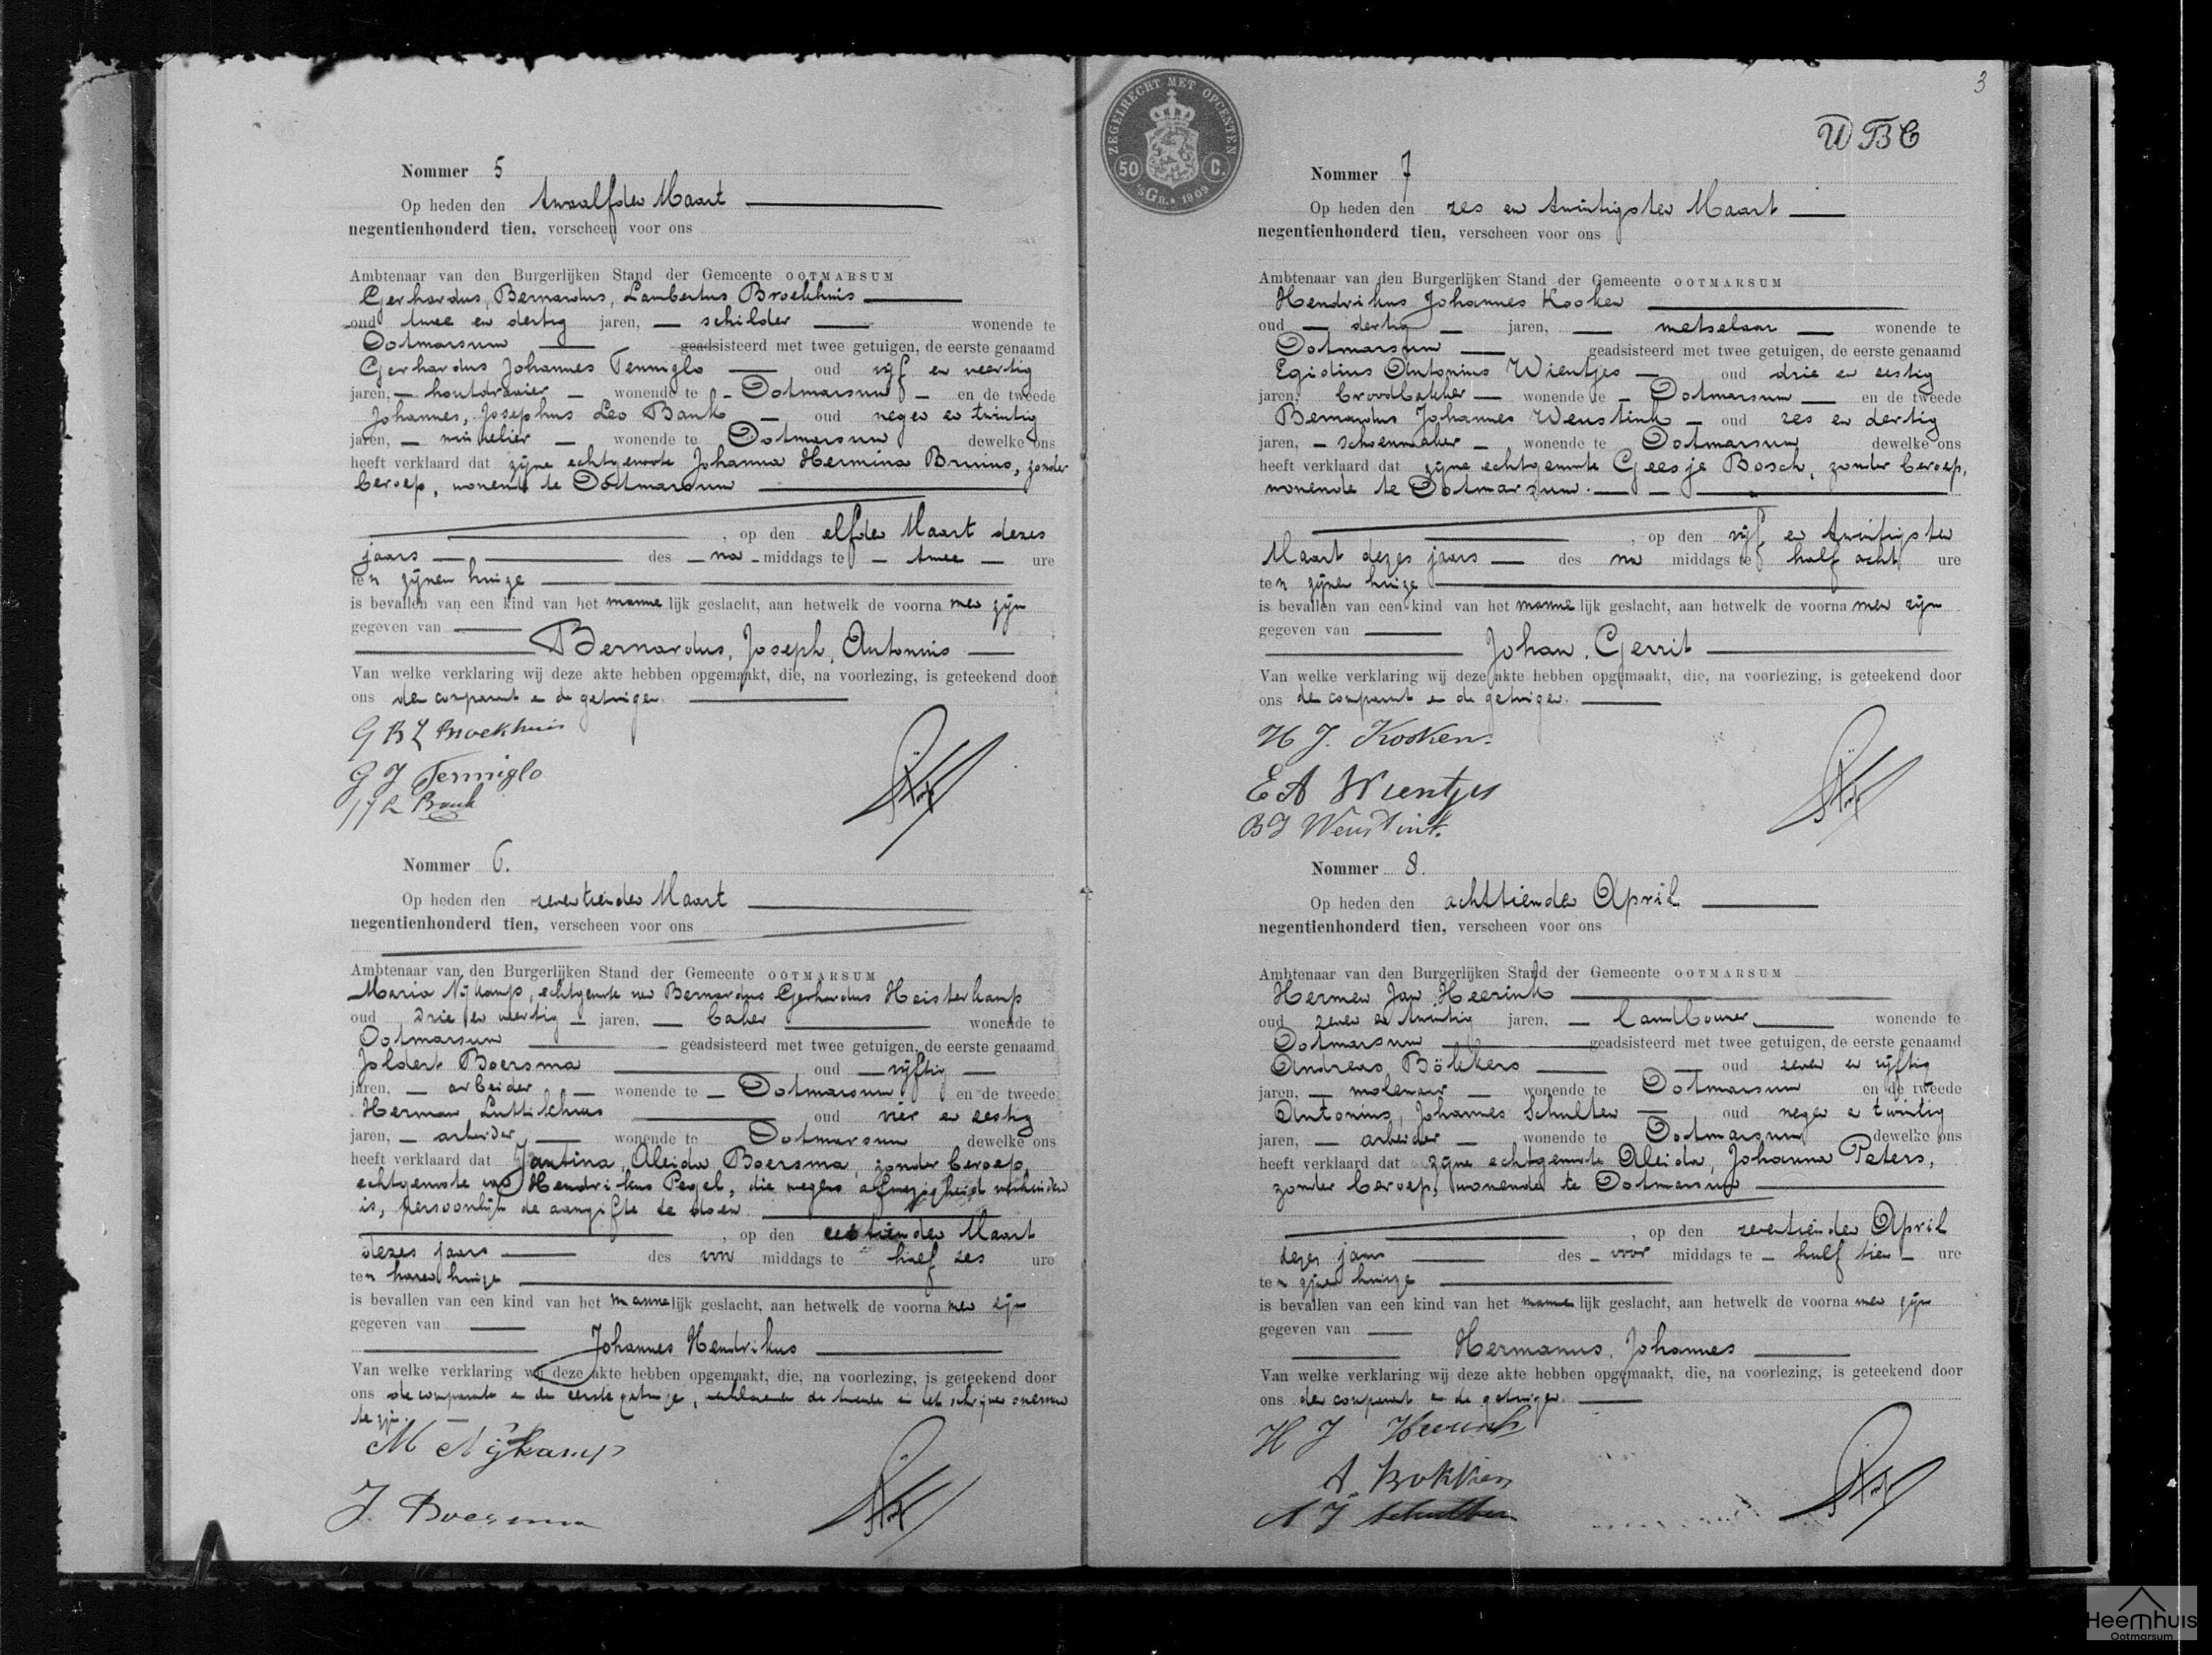 Nommer 5
Op heden den twaalfden Maart
negentienhonderd tien, verscheen voor ons
Ambtenaar van den Burgerlijken Stand der Gemeente OOTMARSUM
Gerhardus, Bernardus, Lambertus Broekhuis
oud twee en dertig jaren, schilder wonende te
Ootmarsum geadsisteerd met twee getuigen, de eerste genaamd
Gerhardus Johannes Tenniglo oud vijf en veertig
jaren, houtdraaier wonende te Ootmarsum en de tweede
Johannes, Josephus Leo Bank oud negen en twintig
jaren, wonende te Ootmarsum dewelke ons
heeft verklaard dat zijne echtgenoote Johanna Hermina Bruins, zonder
beroep, wonende te Ootmarsum
, op den elfden Maart dezes
jaars des na middags te twee ure
ten zijnen huize
is bevallen van een kind van het mannelijk geslacht, aan hetwelk de voornamen zijn
gegeven van
Bernardus, Joseph, Antonius
Van welke verklaring wij deze akte hebben opgemaakt, die, na voorlezing, is geteekend door
ons den comparant en de getuigen.
G B L Broekhuis
G J Tenniglo
Bank
Nommer 6.
Op heden den zeventienden Maart
negentienhonderd tien, verscheen voor ons
Ambtenaar van den Burgerlijken Stand der Gemeente OOTMARSUM
Maria Nijkamp, echtgenoote van Bernardus Gerhardus Heisterkamp
oud drie en veertig jaren, baker wonende te
Ootmarsum geadsisteerd met twee getuigen, de eerste genaamd
Joldert Boersma oud vijftig
jaren, arbeider wonende te Ootmarsum en de tweede
Herman Luttikhuis oud vier en zestig
jaren, arbeider wonende te Ootmarsum dewelke ons
heeft verklaard dat Jantina, Aleida Boersma, zonder beroep,
echtgenoote van Hendrikus Pegel, die wegens afwezigheid verhinderd
is, persoonlijk de aangifte te doen
, op den zestienden Maart
dezes jaars des vm middags te half zes ure
ten haren huize
is bevallen van een kind van het mannelijk geslacht, aan hetwelk de voornamen zijn
gegeven van
Johannes Hendrikus
Van welke verklaring wij deze akte hebben opgemaakt, die, na voorlezing, is geteekend door
ons de comparante en den eersten getuige, verklarende de tweede en het schrijven onervaren
te zijn.
M Nijkamp
J. Boersma
ZEGELRECHT MET OPCENTEN
50 C.
'sGR. 1909
3
WBC
Nommer 7
Op heden den zes en twintigsten Maart
negentienhonderd tien, verscheen voor ons
Ambtenaar van den Burgerlijken Stand der Gemeente OOTMARSUM
Hendrikus Johannes Kooken
oud dertig jaren, metselaar wonende te
Ootmarsum geadsisteerd met twee getuigen, de eerste genaamd
Egidius Antonius Wientjes oud drie en zestig
jaren, broodbakker wonende te Ootmarsum en de tweede
Bernardus Johannes Weustink oud zes en dertig
jaren, schoenmaker wonende te Ootmarsum dewelke ons
heeft verklaard dat zijne echtgenoote Geesje Bosch, zonder beroep,
wonende te Ootmarsum.
, op den vijf en twintigsten
Maart dezes jaars des na middags te half acht ure
ten zijnen huize
is bevallen van een kind van het mannelijk geslacht, aan hetwelk de voornamen zijn
gegeven van
Johan, Gerrit
Van welke verklaring wij deze akte hebben opgemaakt, die, na voorlezing, is geteekend door
ons den comparant en de getuigen.
H J. Kooken.
E A Wientjes
B J Weustink.
Nommer 8.
Op heden den achttienden April
negentienhonderd tien, verscheen voor ons
Ambtenaar van den Burgerlijken Stand der Gemeente OOTMARSUM
Hermen Jan Heerink
oud zeven en twintig jaren, landbouwer wonende te
Ootmarsum geadsisteerd met twee getuigen, de eerste genaamd
Andreas Bölkers oud zeven en vijftig
jaren, molenaar wonende te Ootmarsum en de tweede
Antonius, Johannes Schulten oud negen en twintig
jaren, arbeider wonende te Ootmarsum dewelke ons
heeft verklaard dat zijne echtgenoote Aleida, Johanna Peters,
zonder beroep, wonende te Ootmarsum
, op den zeventienden April
dezes jaars des voor middags te half tien ure
ten zijnen huize
is bevallen van een kind van het mannelijk geslacht, aan hetwelk de voornamen zijn
gegeven van
Hermannus, Johannes
Van welke verklaring wij deze akte hebben opgemaakt, die, na voorlezing, is geteekend door
ons den comparant en de getuigen.
H J Heerink
A. 
A J Schulten
Heemhuis
Ootmarsum